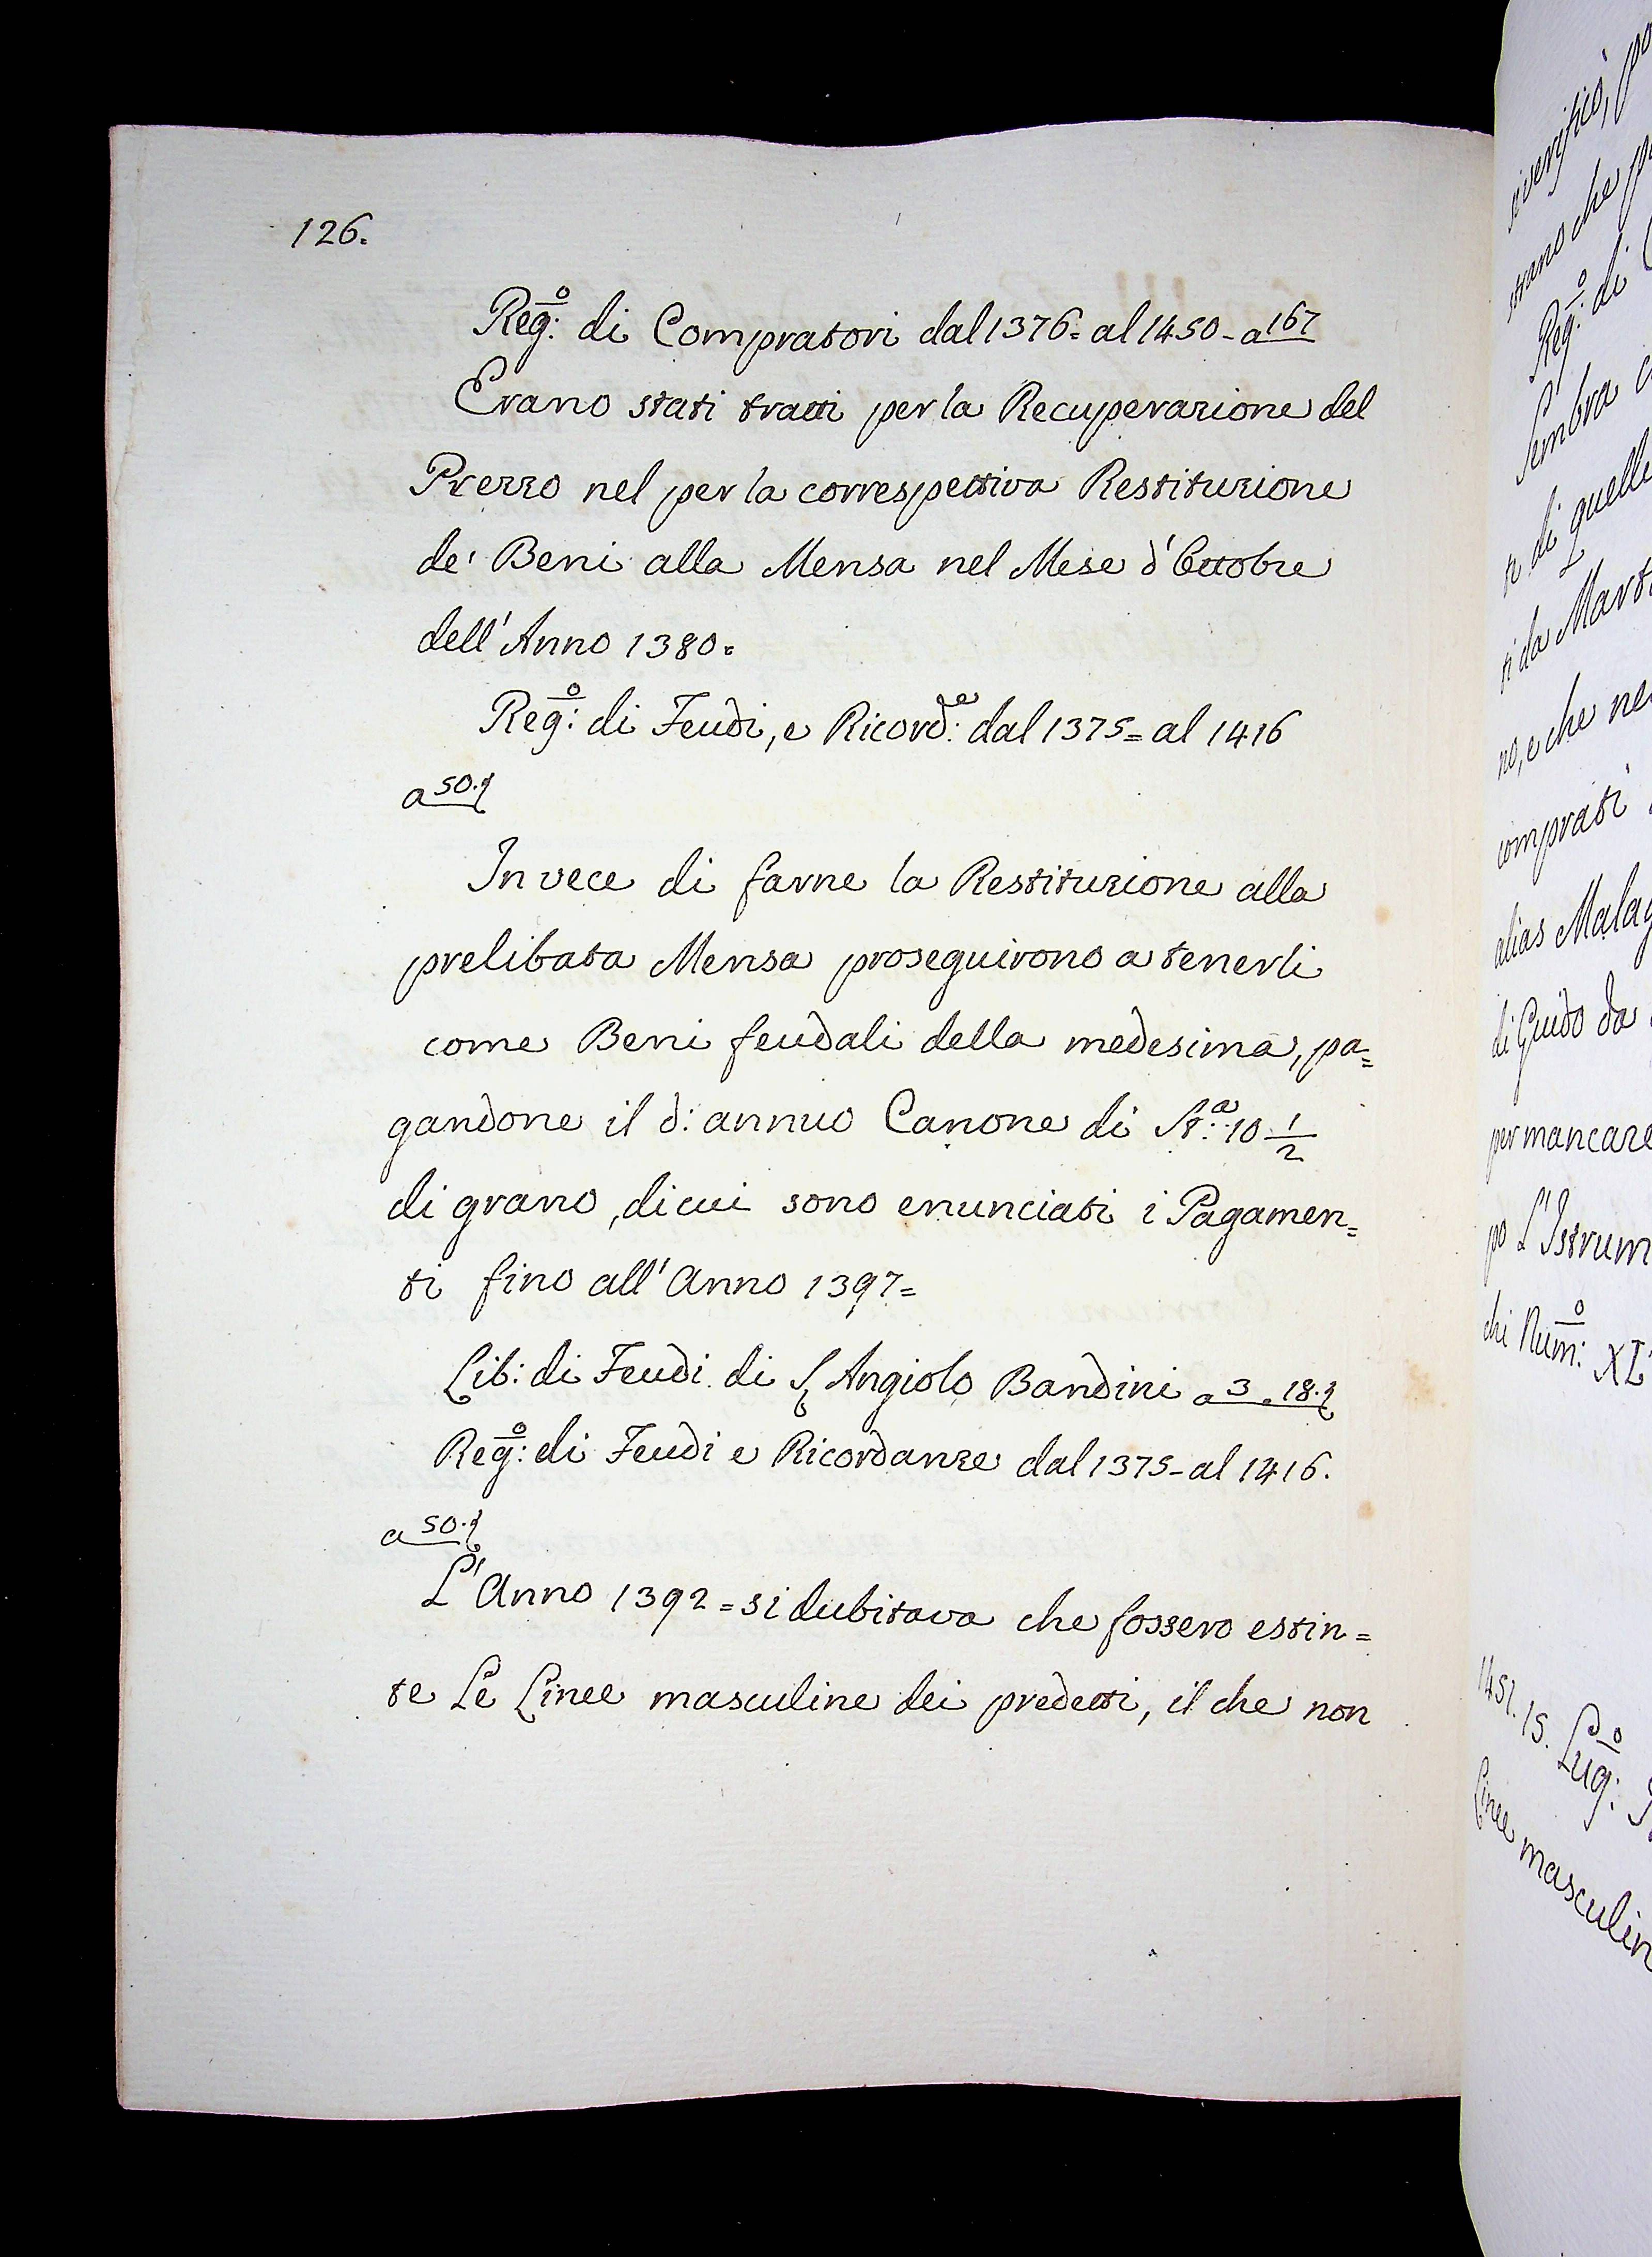 126.
Reg:º di Compratori dal 1376= al 1450- a 167
Erano stati tratti per la Recuperazione del
Prezzo nel per la correspettiva Restituzione
de' Beni alla Mensa nel Mese d'Ottobre
dell'Anno 1380=
Reg:º di Feudi, e Ricord:e dal 1375= al 1416
a 50.
In vece di farne la Restituzione alla
prelibata Mensa proseguirono a tenerli
come Beni feudali della medesima, pa=
gandone il d: annuo Canone di St:a 10 1/2
di grano, di cui sono enunciati i Pagamen=
ti fino all'Anno 1397=
Lib: di Feudi di S. Angiolo Bandini a 3. 18.
Reg:º di Feudi e Ricordanze dal 1375- al 1416.
a 50.
L'Anno 1392= si dubitava che fossero estin=
te Le Linee masculine dei predetti, il che non
si verificò, po
strano che p
Reg:º di
Sembra
ti di quelle
ti da Mart
no, e che ne
comprati
alias Malag
di Guido da
per mancare
po L'Istrum
chi Num:º XL
1451. 15. Lug:º
Linee masculin